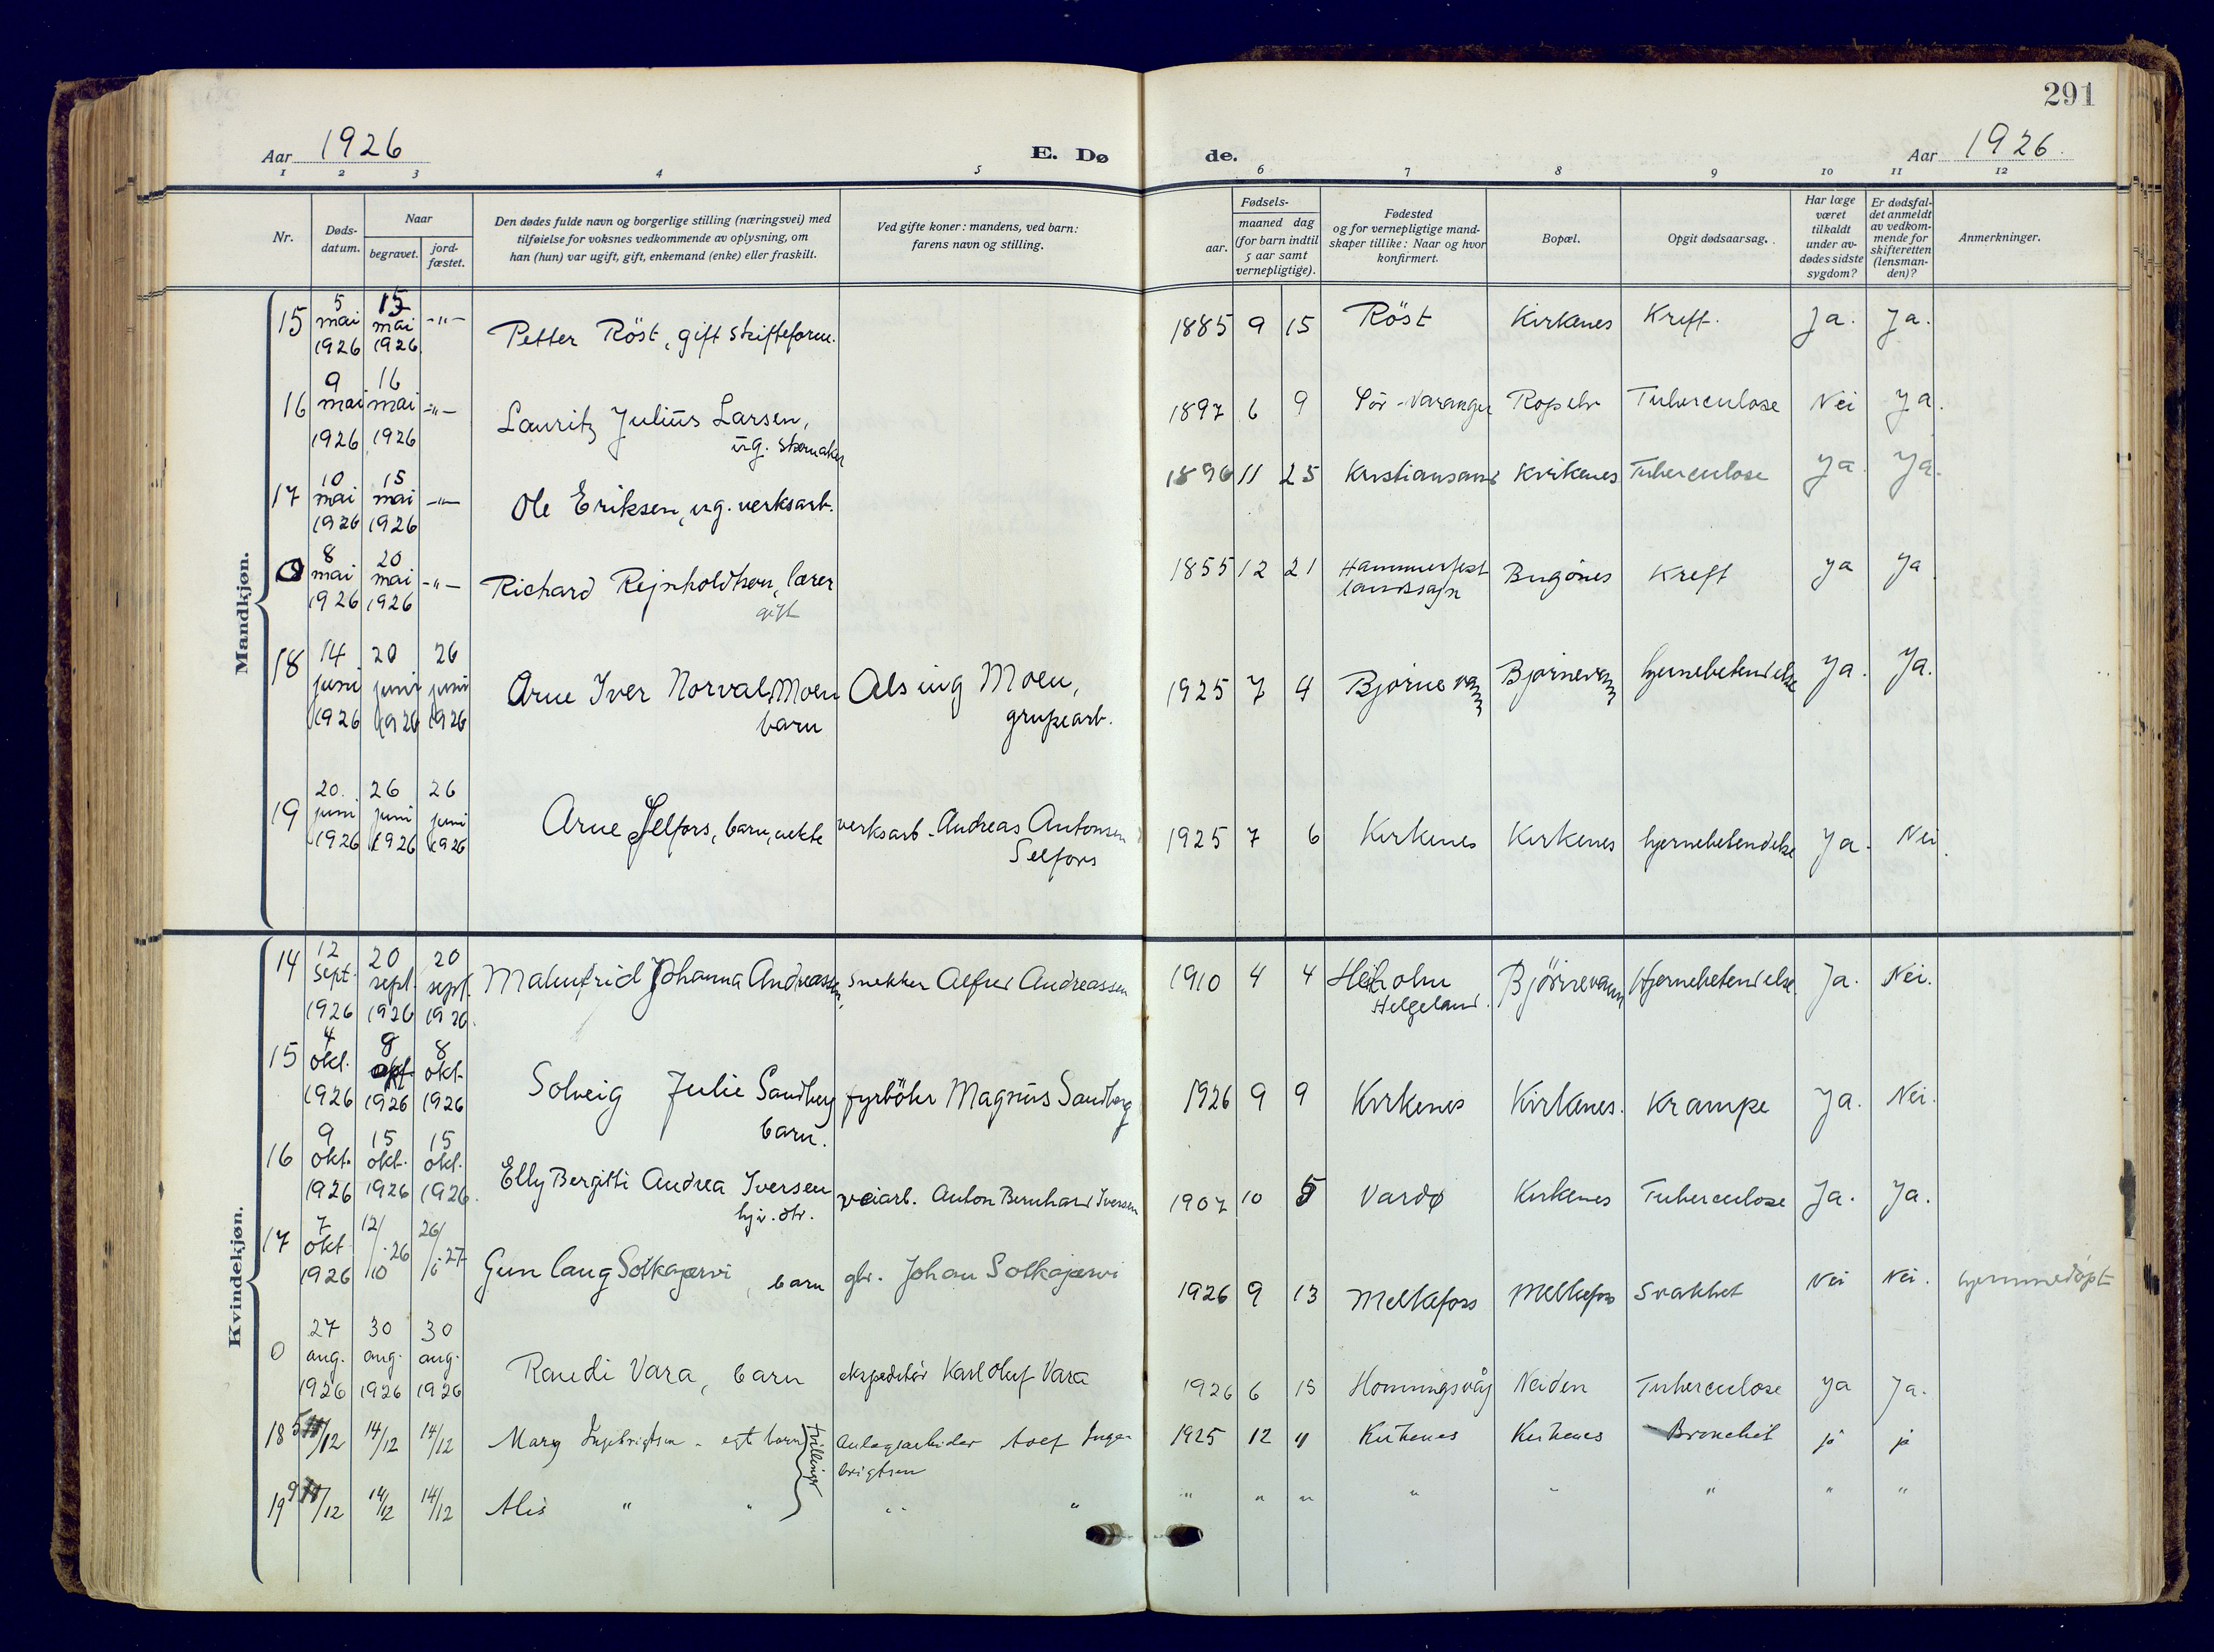 291
Aar 1926 E. Døde. Aar 1926.
1 2 3 4 5 6 7 8 9 10 11 12
Nr. Dødsdatum. Naar begravet. jordfæstet. Den dødes fulde navn og borgerlige stilling (næringsvei) med tilføielse for voksnes vedkommende av oplysning, om han (hun) var ugift, gift, enkemand (enke) eller fraskilt. Ved gifte koner: mandens, ved barn: farens navn og stilling. Fødsels- aar. maaned dag (for barn indtil 5 aar samt vernepligtige). Fødested og for vernepligtige mandskaper tillike: Naar og hvor konfirmert. Bopæl. Opgit dødsaarsag. Har læge været tilkaldt under avdødes sidste sygdom? Er dødsfaldet anmeldt av vedkommende for skifteretten (lensmanden)? Anmerkninger.
Mandkjøn.
15 5 mai 1926 15 mai 1926 -"- Petter Röst, gift skifteform. 1885 9 15 Röst Kirkenes Kreft. Ja. Ja.
16 9 mai 1926 16 mai 1926 -"- Lauritz Julius Larsen, ug. 1897 6 9 Sör-Varanger Tuberculose Nei Ja.
17 10 mai 1926 15 mai 1926 -"- Ole Eriksen, ug. verksarb. 1896 11 25 Kristiansand Kirkenes Tuberculose Ja. Ja.
0 8 mai 1926 20 mai 1926 -"- Richard Rejnholdtsen, lærer gift 1855 12 21 Hammerfest landssogn Bugönes Kreft Ja Ja
18 14 juni 1926 20 juni 1926 26 juni 1926 Arne Iver Norval Moen barn Alsing Moen, grupearb. 1925 7 4 Bjørnevann Bjørnevann hjernebetendelse Ja. Ja.
19 20. juni 1926 26 juni 1926 26 juni 1926 Arne Selfors, barn, uekte verksarb. Andreas Antonsen Selfors 1925 7 6 Kirkenes Kirkenes hjernebetendelse Ja. Nei.
Kvindekjøn.
14 12 sept. 1926 20 sept. 1926 20 sept. 1926. Malmfrid Johanna Andreassen, snekker Alfred Andreassen 1910 4 4 Helgeland. Bjørnevann Hjernebetendelse. Ja. Nei.
15 4 okt. 1926 8 okt. 1926 8 okt. 1926 Solveig Julie Sandberg barn. fyrböter Magnus Sandberg 1926 9 9 Kirkenes Kirkenes. Krampe Ja. Nei.
16 9 okt. 1926 15 okt. 1926 15 okt. 1926. Elly Bergitti Andrea Iversen hjv. dtr. veiarb. Anton Bernhard Iversen 1907 10 5 Vardø Kirkenes Tuberculose Ja. Ja.
17 7 okt 1926 12/10-26 26/6-27 Gunlaug Sotkajærvi, barn gbr. Johan Sotkajærvi 1926 9 13 Melkefoss Melkefoss Svakhet Nei Nei. hjemmedöpt
0 27 aug. 1926 30 aug. 1926 30 aug. 1926 Randi Vara, barn ekspeditör Karl Oluf Vara 1926 6 15 Honningsvåg Neiden Tuberculose Ja Ja.
18 5/12 14/12 14/12 Mary Ingebrigtsen - egte barn Anlægsarbeider Ingebrigtsen 1925 12 11 Kirkenes Kirkenes Bronchit ja ja
tvillinger
19 9/12 14/12 14/12 Alis " " " " " " " " " " " "